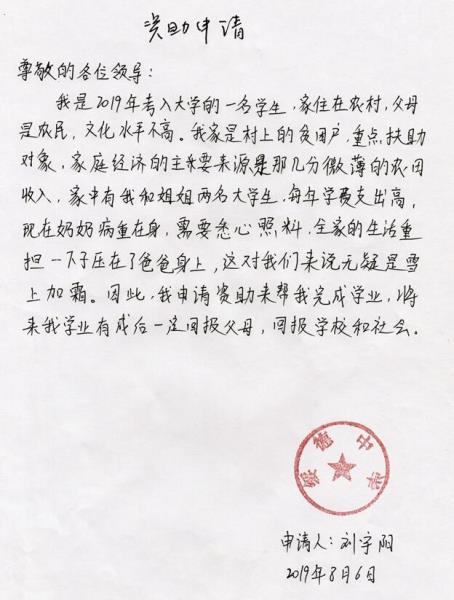 资助申请
尊敬的各位领导：
我是2019年考入大学的一名学生，家住在农村，父母
是农民，文化水平不高。我家是村上的贫困户，重点扶助
对象，家庭经济的主要来源是那几分微薄的农田
收入，家中有我和姐姐两名大学生，每年学费支出高，
现在奶奶病重在身，需要悉心照料，全家的生活重
担一下子压在了爸爸身上，这对我们来说无疑是雪
上加霜。因此，我申请资助来帮我完成学业，将
来我学业有成后一定回报父母，回报学校和社会。
绥德中学
申请人：刘宇阳
2019年8月6日